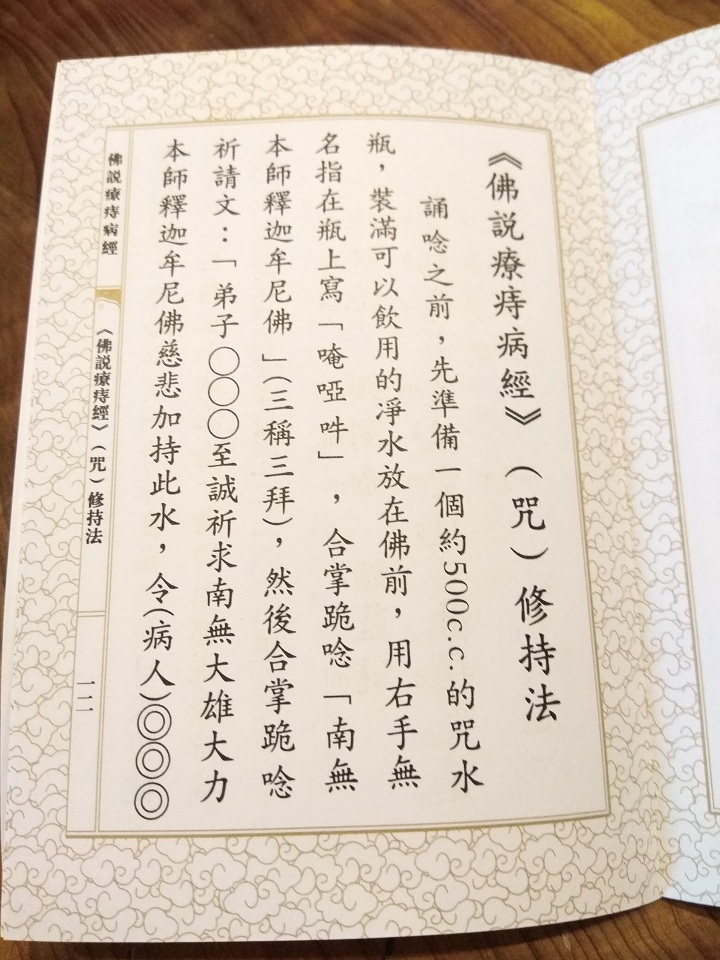 《佛説療痔病經》（咒）修持法
誦唸之前，先準備一個約500c.c.的咒水
瓶，裝滿可以飲用的淨水放在佛前，用右手無
名指在瓶上寫「唵啞吽」，合掌跪唸「南無
本師釋迦牟尼佛」(三稱三拜)，然後合掌跪唸
祈請文：「弟子○○○至誠祈求南無大雄大力
本師釋迦牟尼佛慈悲加持此水，令(病人)◎◎◎
佛説療痔病經
《佛説療痔病經》（咒）修持法
一二